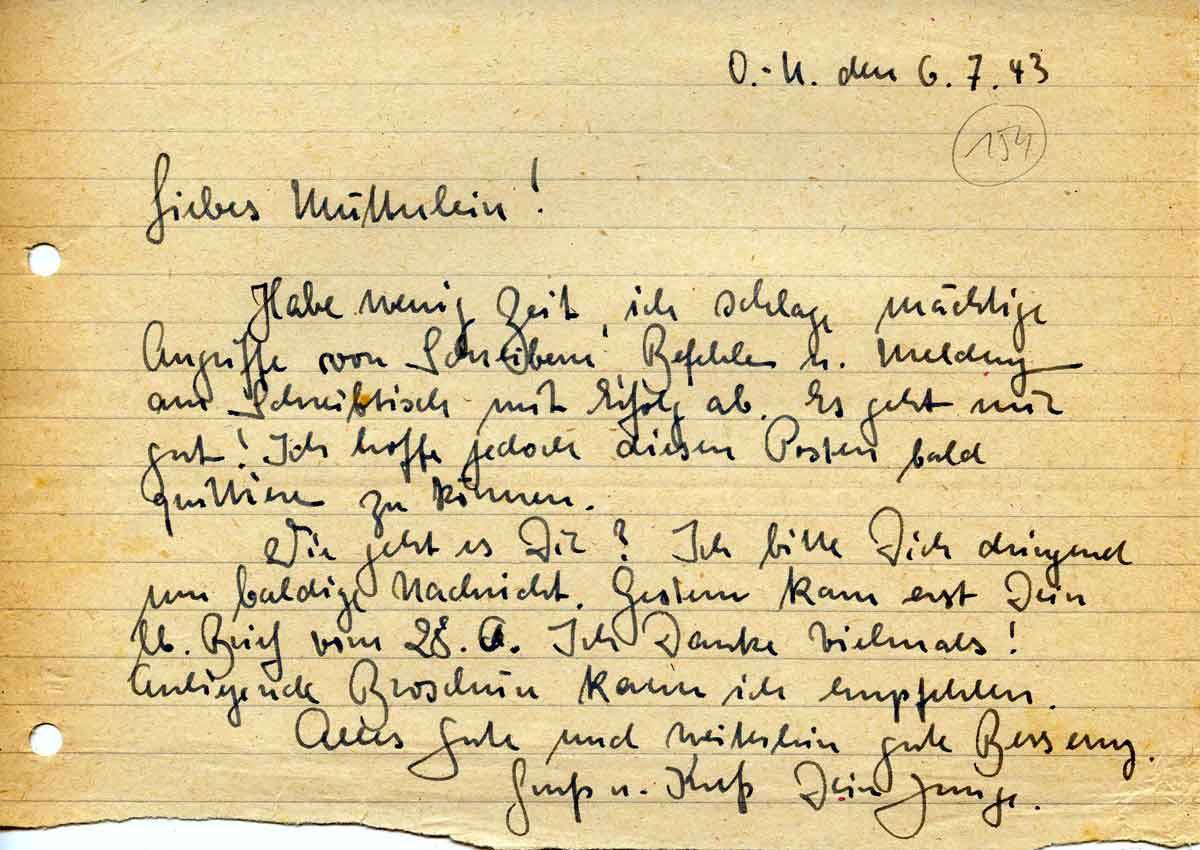 O.-U. den 6.7.43
154
Liebes Mütterlein!
Habe wenig Zeit, ich schlage mächtige
Angriffe von Schreiben, Befehlen u. Meldung
am Schreibtisch mit Erfolg ab. Es geht mir
gut! Ich hoffe jedoch diesen Posten bald
quittieren zu können.
Wie geht es Dir? Ich bitte Dich dringend
um baldige Nachricht. Gestern kam erst Dein
lb. Brief vom 28. 6. Ich Danke vielmals!
Anliegende Broschüre kann ich empfehlen.
Alles Gute und weiterhin gute Besserung.
Gruß u. Kuß Dein Junge.